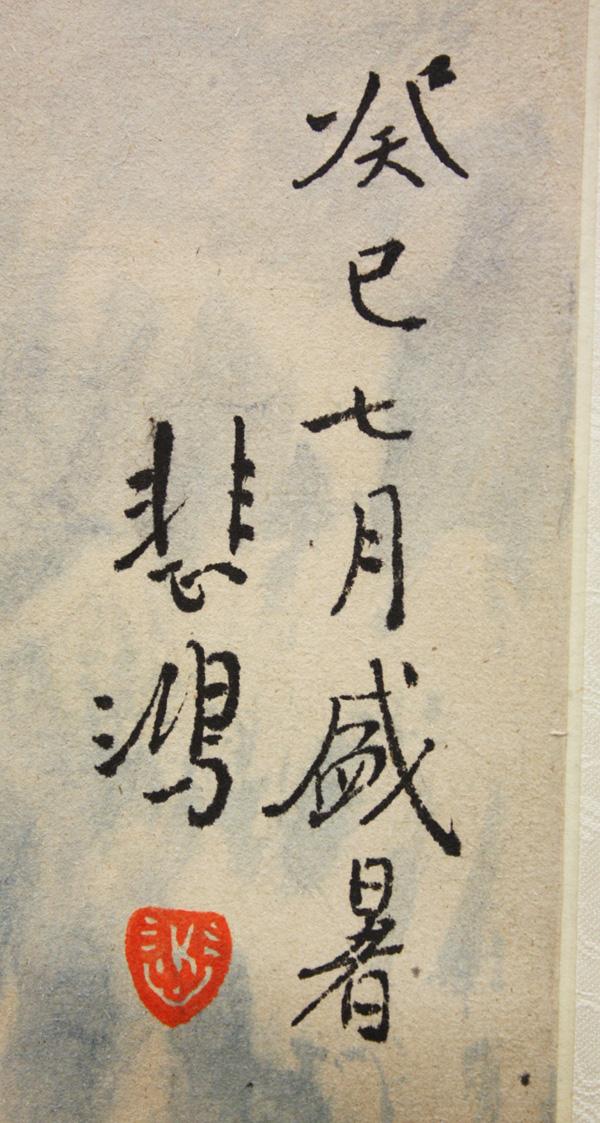 癸巳七月盛暑
悲鴻